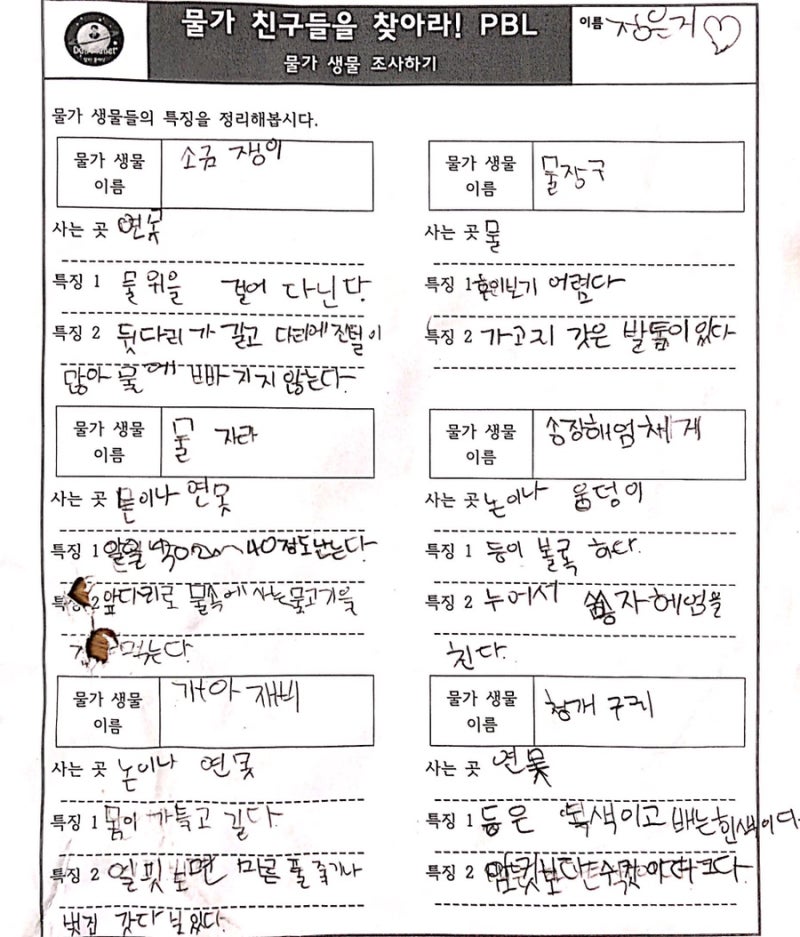 물가 친구들을 찾아라! PBL
물가 생물 조사하기
이름 정은지
물가 생물들의 특징을 정리해봅시다.
물가 생물 이름 소금 쟁이
사는 곳 연못
특징 1 물 위을 걸어 다닌다.
특징 2 뒷다리 가 길고 다리에 잔털이
많아 물에 빠 지지 않는다.
물가 생물 이름 물장구
사는 곳 물
특징 1 어렵다
특징 2 가고지 갖은 발톱이 있다
물가 생물 이름 물 자라
사는 곳 논이나 연못
특징 1 알을 정도 낳는다
특징 2 앞다리로 물속에 사는 물고기을
먹는다.
물가 생물 이름 송장해엄체게
사는 곳 논이나 웅덩이
특징 1 등이 볼록 하다.
특징 2 누어서 송자해엄을
친다.
물가 생물 이름 게아재비
사는 곳 논이나 연못
특징 1 몸이 가늘고 길다.
특징 2 얼핏 보면 마른 풀 줄기나
볏집 갓다
물가 생물 이름 청개구리
사는 곳 연못
특징 1 등은 녹색이고 배는 힌색이다
특징 2 암컷보다 수컷이 더 크다.